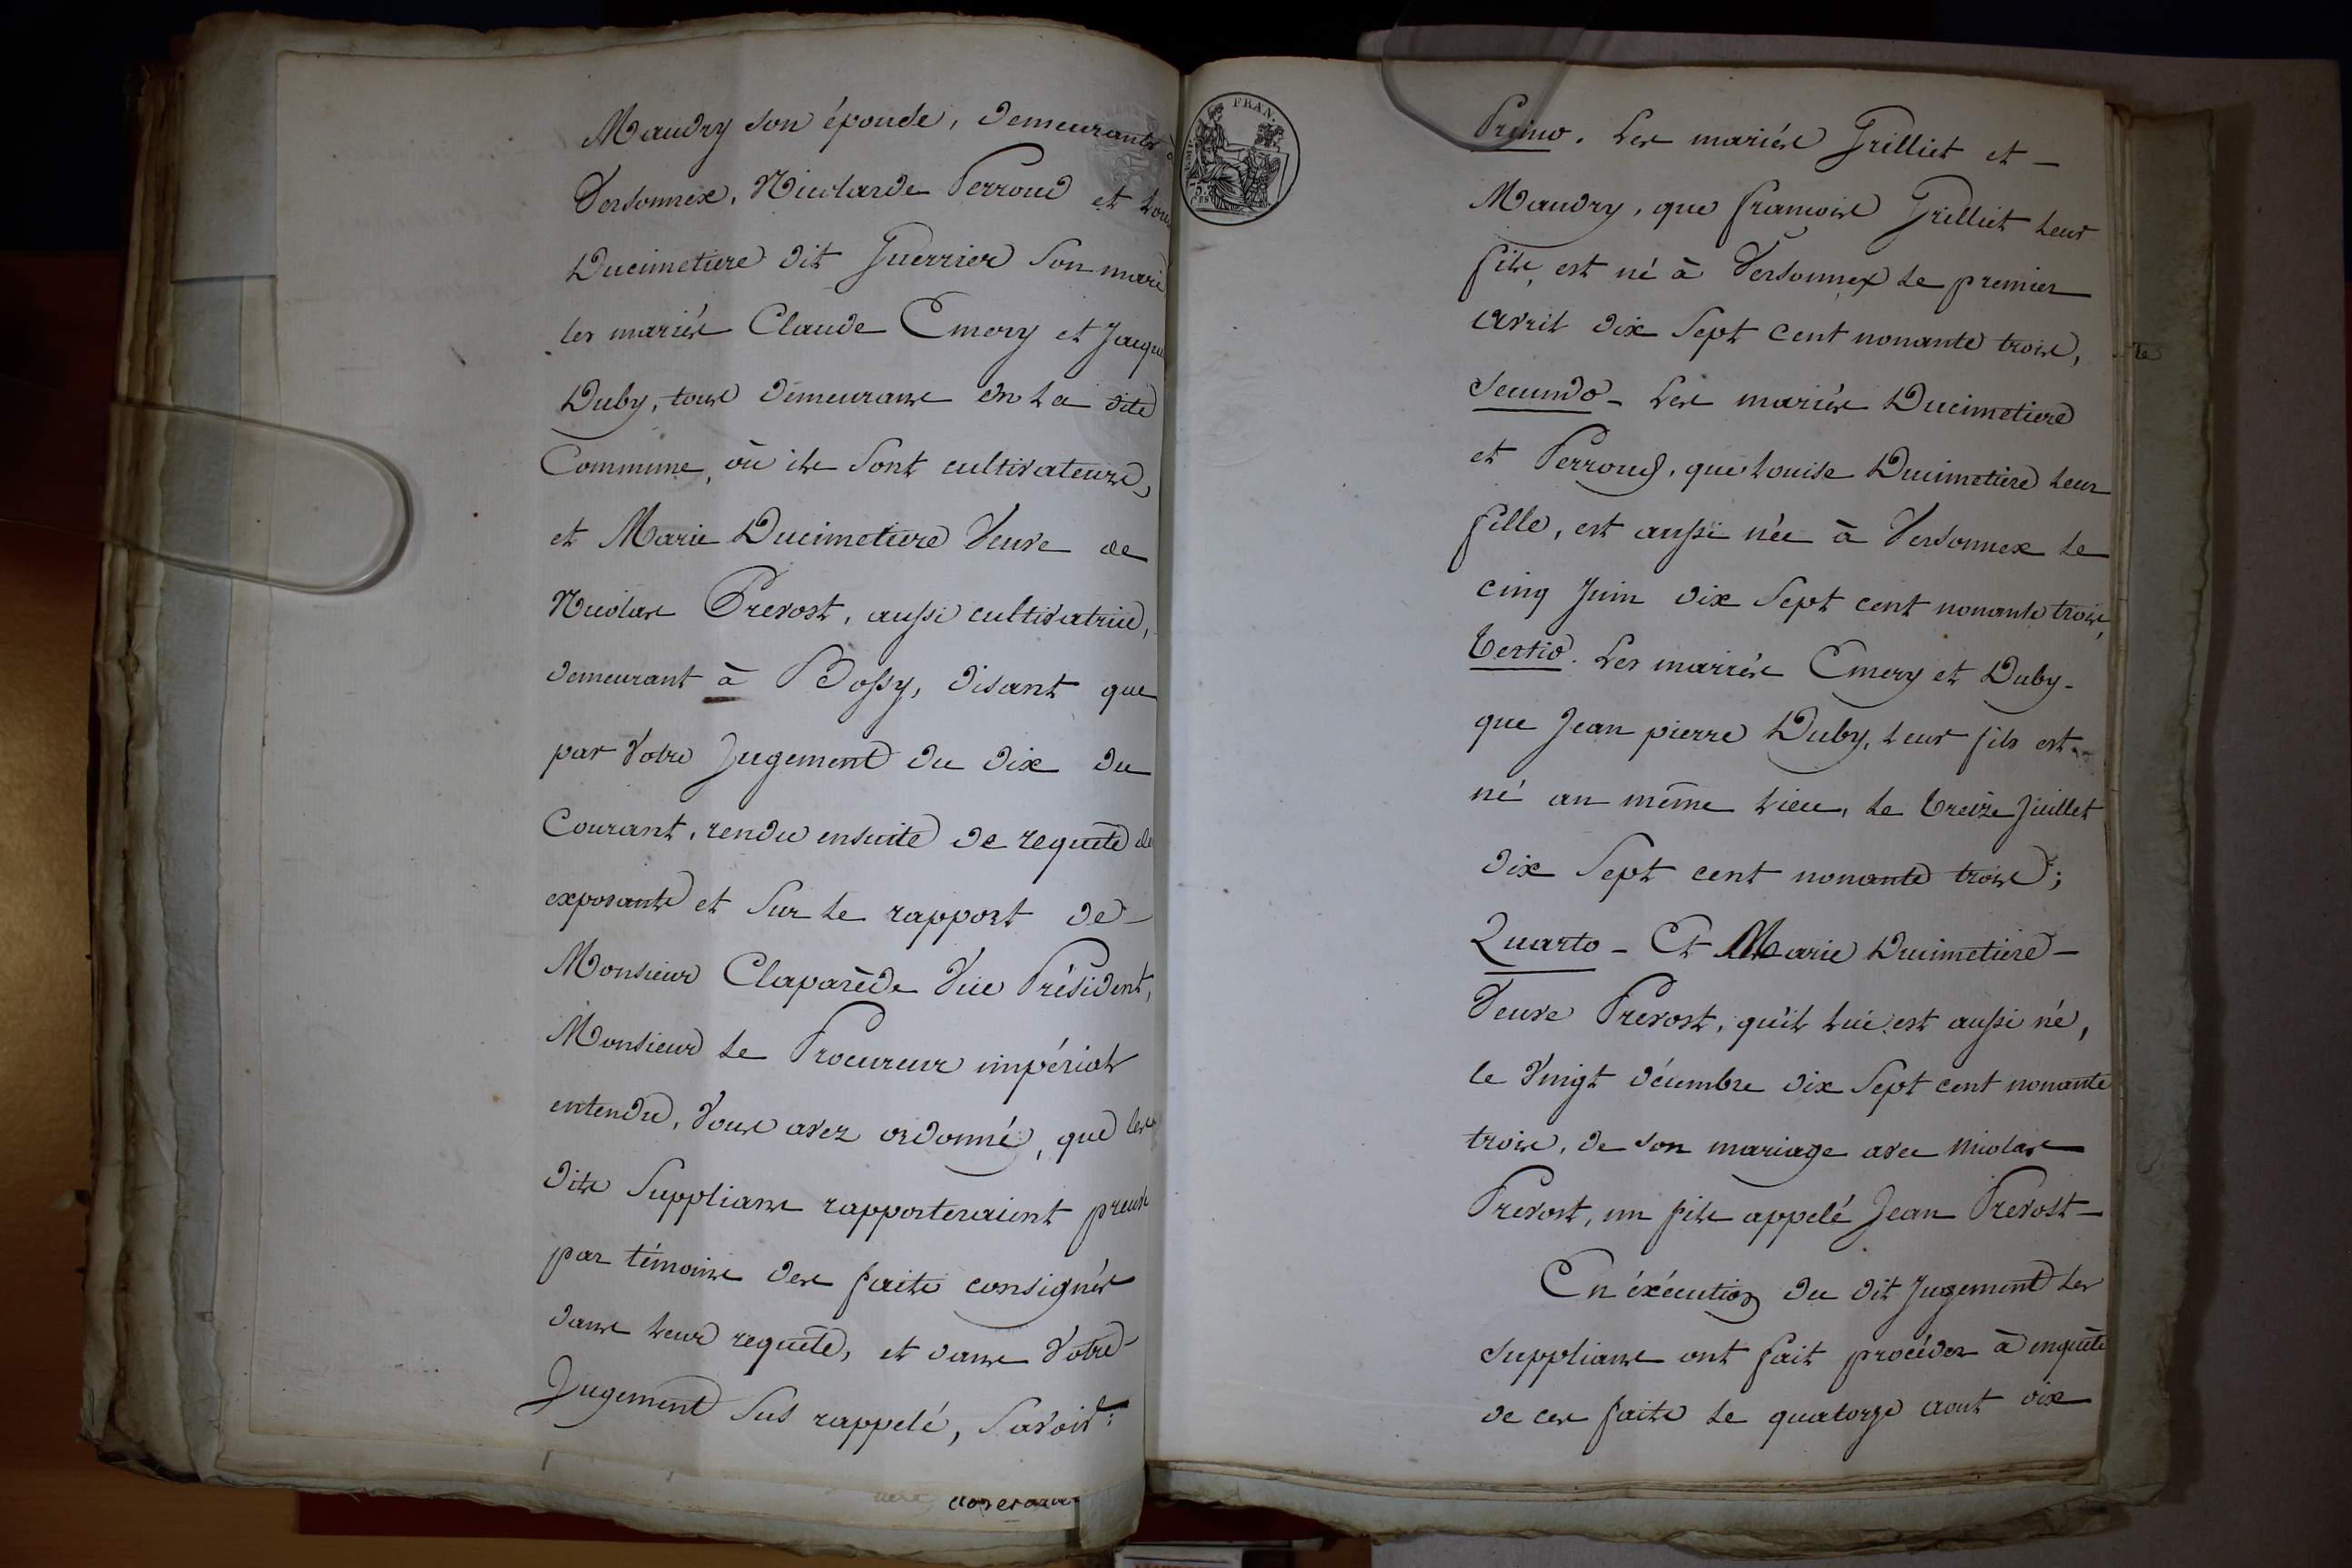 Maudry son épouse, demeurants à
Versonnex, Nicolarde Perroud et
Ducimetiere dit Guerrier son mari
les mariés Claude Emery et Jaque
Duby, tous demeurans en la dite
Commune, où ils sont cultivateurs,
et Marie Ducimetiere Veuve de
Nicolas Prevost, aussi cultivatrice,
demeurant à Bossy, disant que
par Votre Jugement du dix du
Courant, rendu ensuite de requête de
exposants et sur le rapport de
Monsieur Claparède Vice Président,
Monsieur le Procureur impérial
entendu, Vous avez ordonné, que les
dits Supplians rapporteraient preuve
par témoins des faits consignés
dans leur requête, et dans Votre
Jugement sus rappelé, Savoir:
FRAN.
Primo. Les mariés Grilliet et
Maudry, que françois Grilliet leur
fils, est né à Versonnex le premier
avril dix Sept cent nonante trois,
Secundo - Les mariés Ducimetiere
et Perroud, que Louise Ducimetière leur
fille, est aussi née à Versonnex le
cinq Juin dix Sept cent nonante trois,
Tertio. Les mariés Emery et Duby -
que Jean pierre Duby, leur fils est
né au même lieu, le treize Juillet
dix Sept cent nonante trois;
Quarto - Et Marie Ducimetière -
Veuve Prevost, qu'il lui est aussi né,
le Vingt décembre dix Sept cent nonante
trois, de son mariage avec Nicolas
Prevost, un fils appelé Jean Prevost -
En éxécution du dit Jugement les
Supplians ont fait procéder à enquête
de ces faits le quatorze aout dix